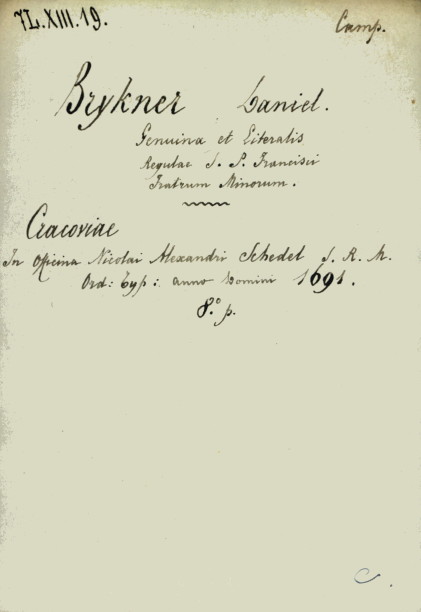 7L.XIII.19.
Camp.
Brykner Daniel.
Genuina et Literalis
Regulae S. P. Francisci
Fratrum Minorum.
Cracoviae
In Officina Nicolai Alexandri Schedel S. R. M.
Ord: Typ: anno Domini 1691.
8.° p.
C.